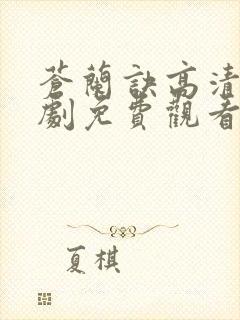 蒼蘭訣高清
劇免費觀看
夏棋